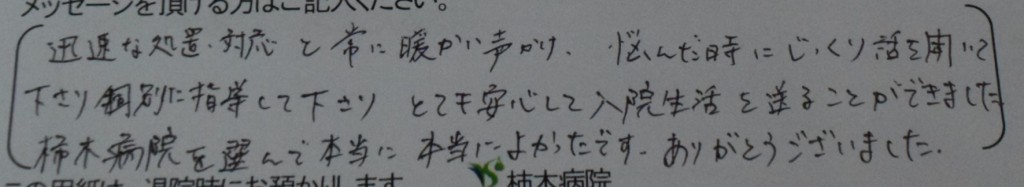 メッセージを頂ける方はご記入ください。
迅速な処置・対応と常に暖かい声かけ、悩んだ時にじっくり話を聞いて
下さり個別に指導して下さり とても安心して入院生活を送ることができました
柿木病院を選んで本当に本当によかったです。ありがとうございました。
この用紙は、退院時にお預かりします
柿木病院